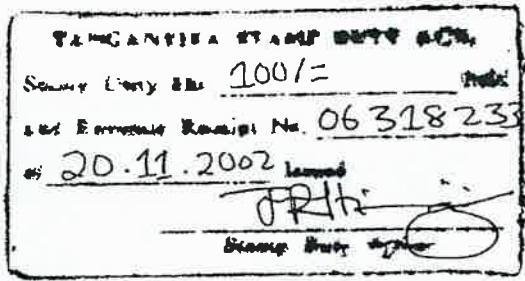 TANGANYIKA STAMP DUTY ACT.
Stamp Duty Shs 100/= Paid
and Exchequer Receipt No. 06318233
of 20.11.2002 Issued
Stamp Duty Officer